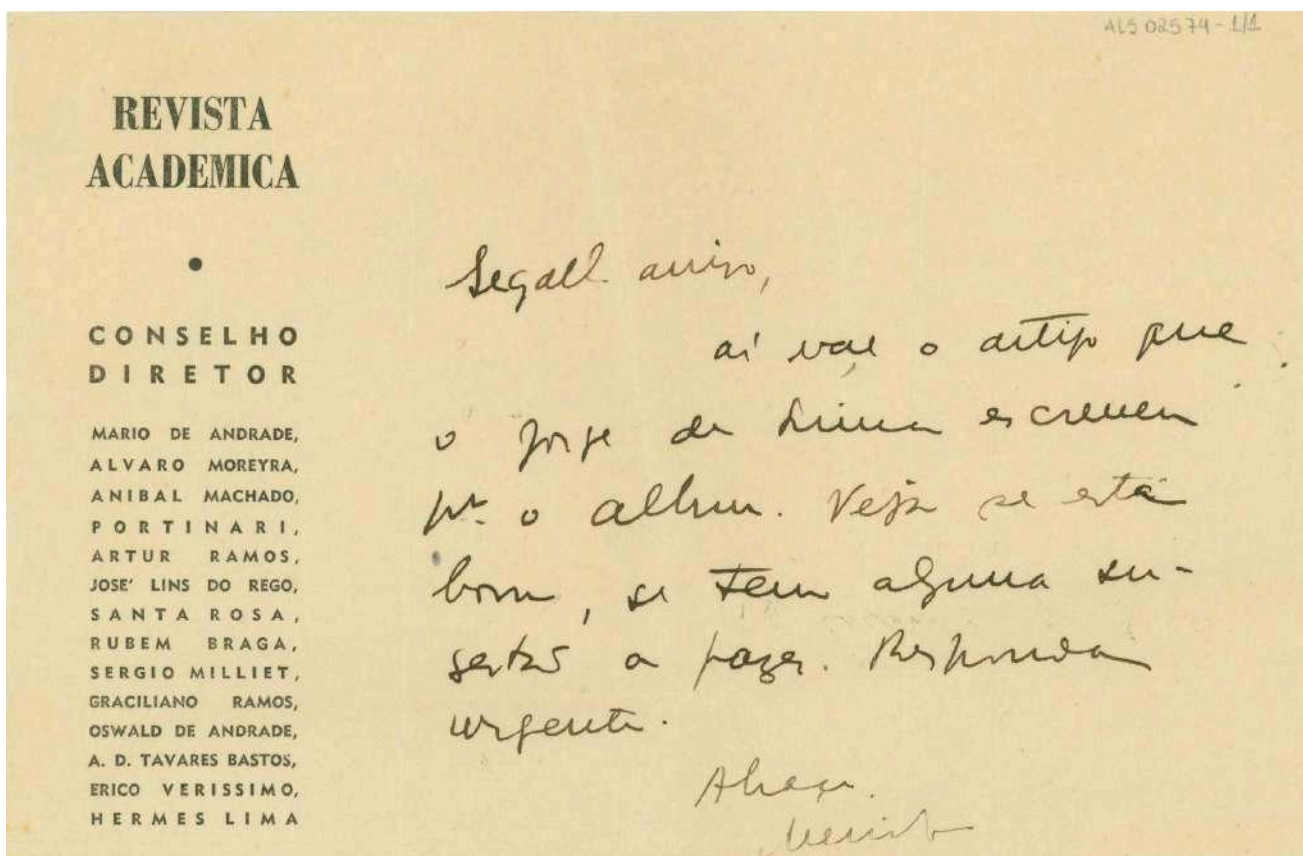 ALS 02574-1/1
REVISTA
ACADEMICA
CONSELHO
DIRETOR
MARIO DE ANDRADE,
ALVARO MOREYRA,
ANIBAL MACHADO,
PORTINARI,
ARTUR RAMOS,
JOSE' LINS DO REGO,
SANTA ROSA,
RUBEM BRAGA,
SERGIO MILLIET,
GRACILIANO RAMOS,
OSWALD DE ANDRADE,
A. D. TAVARES BASTOS,
ERICO VERISSIMO,
HERMES LIMA
Segall amigo,
aí vae o artigo que
o Jorge de Lima escreveu
pr. o album. Veja se está
bom, se tem alguma su-
gestão a fazer. Responda
urgente.
Abraço.